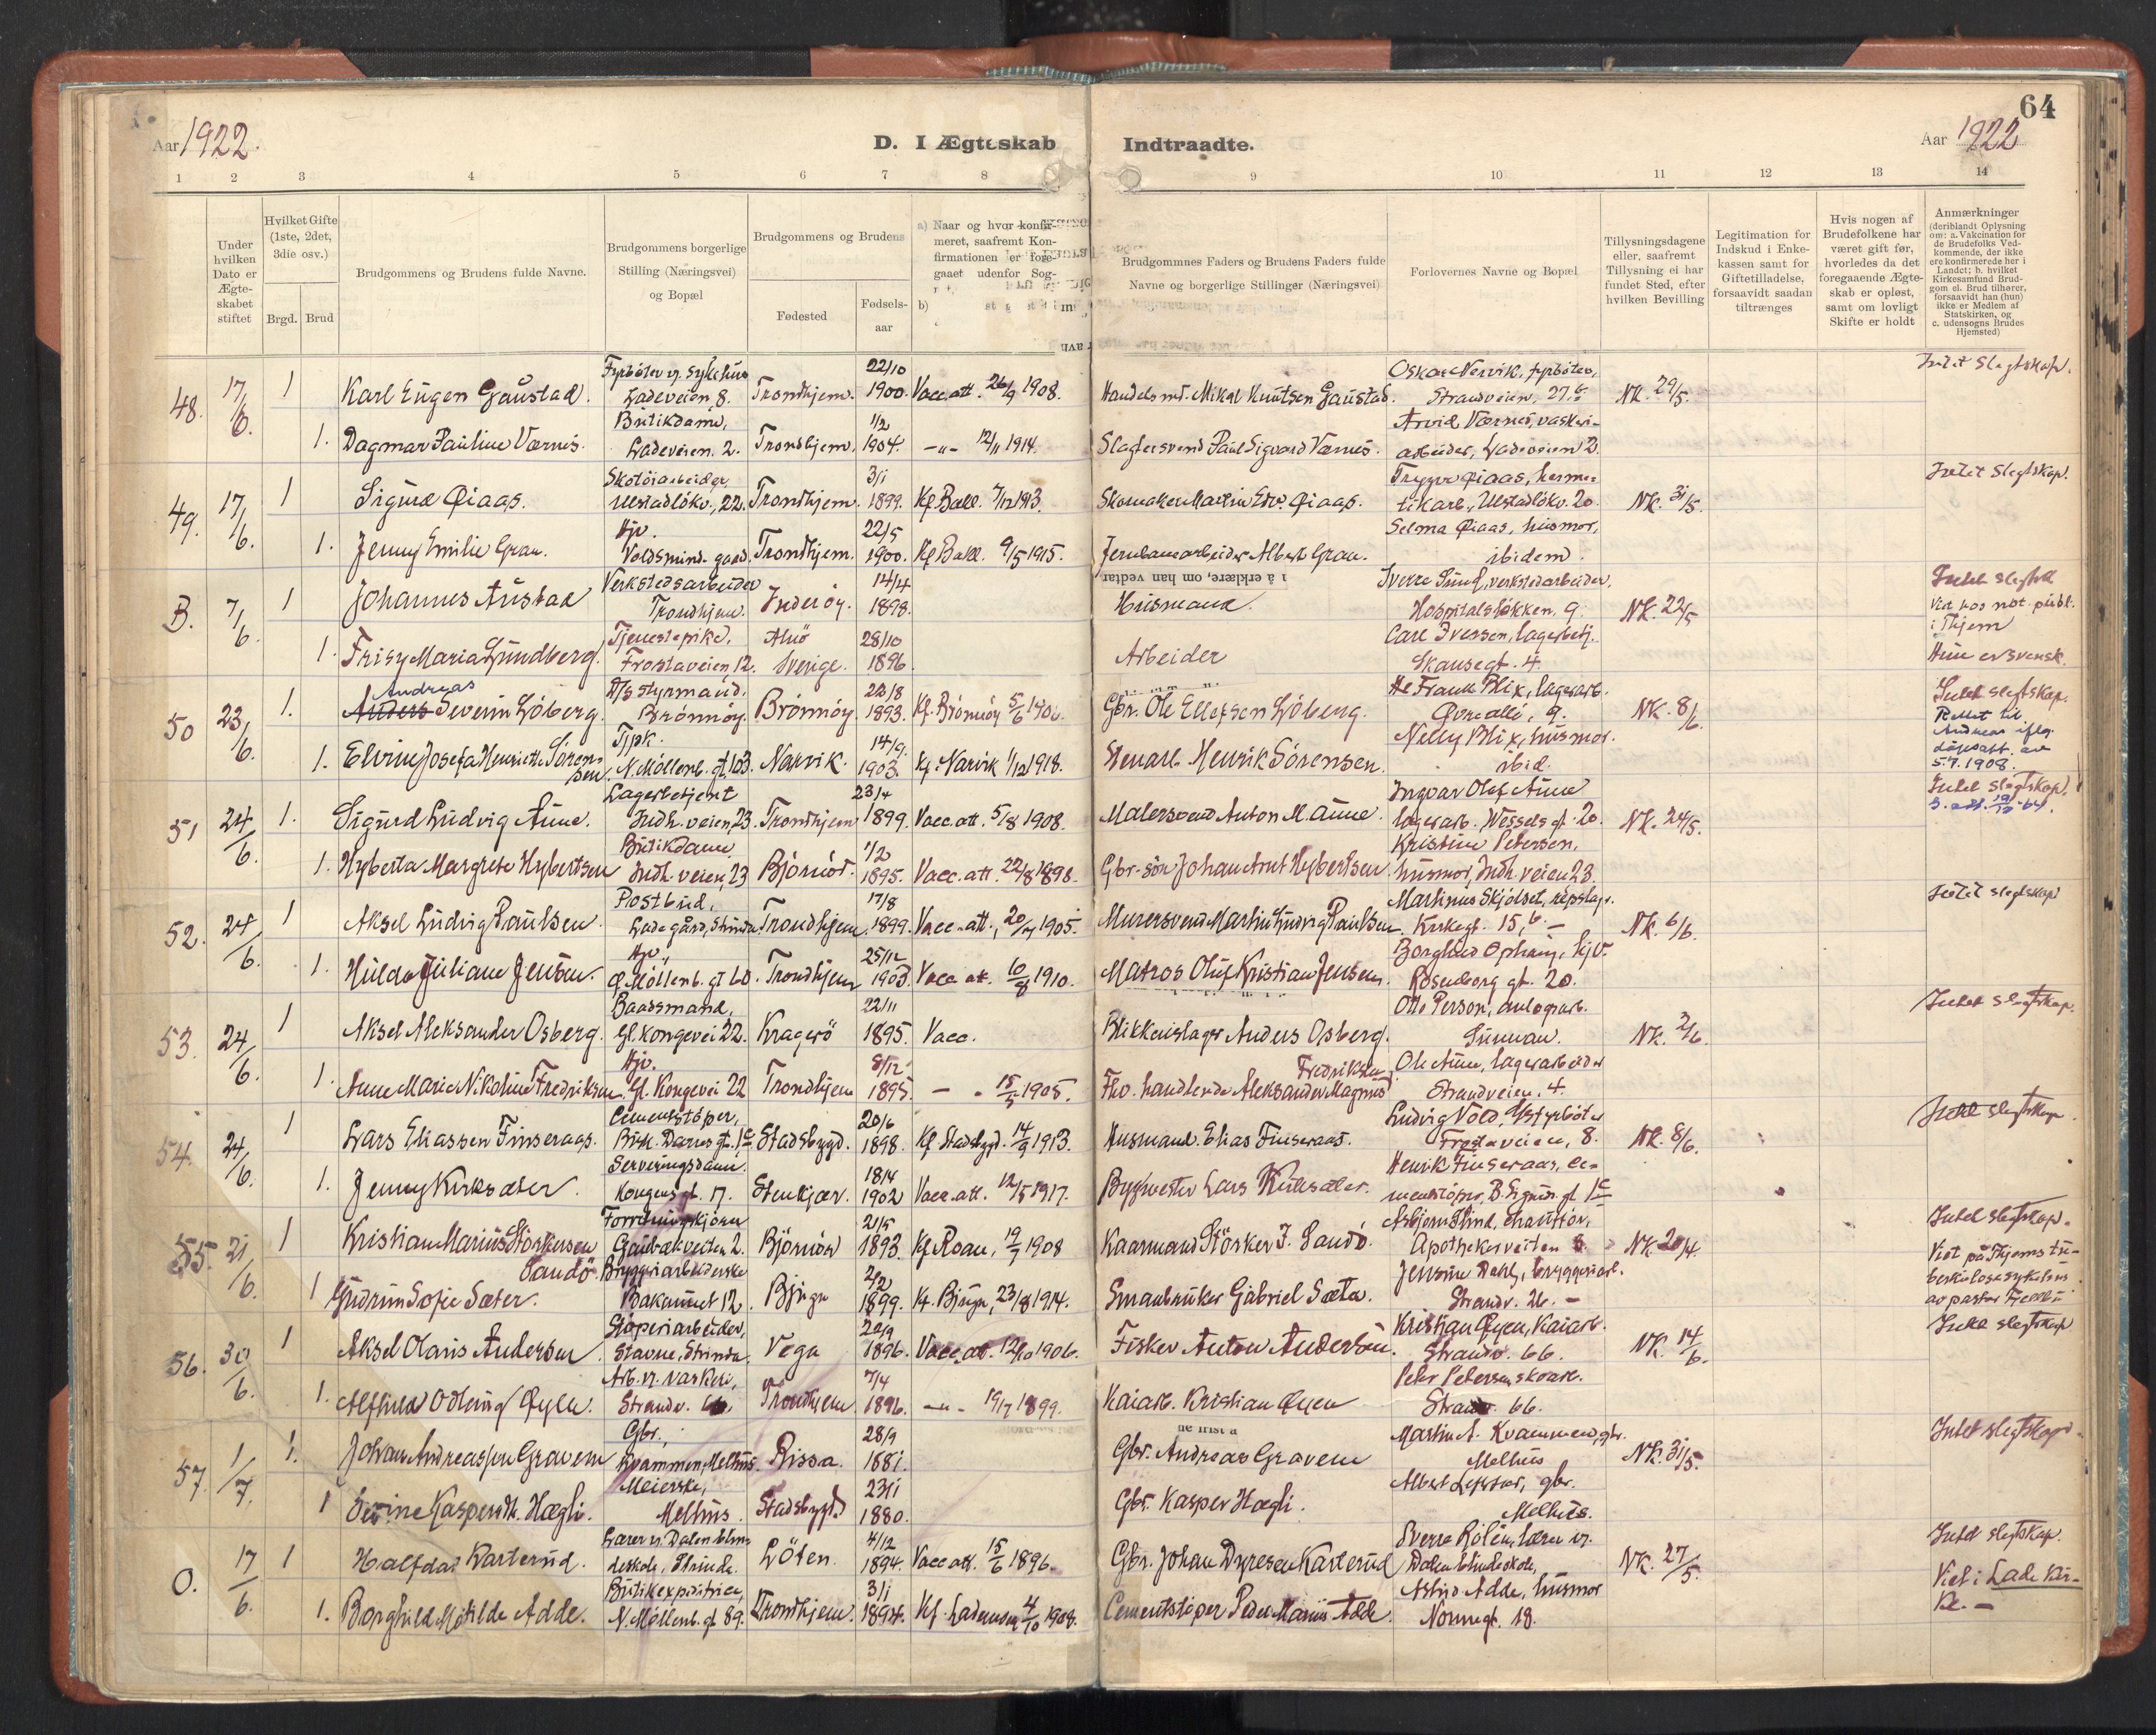 64
Aar 1922.
D. I Ægteskab
Indtraadte.
Aar 1922
1 2 3 4 5 6 7 8 9 10 11 12 13 14
Under hvilken Dato er Ægteskabet stiftet
Hvilket Gifte (1ste, 2det, 3die osv.)
Brgd. Brud
Brudgommens og Brudens fulde Navne.
Brudgommens borgerlige Stilling (Næringsvei) og Bopæl
Brudgommens og Brudens
Fødested
Fødsels-aar
a) Naar og hvor konfir-
meret, saafremt Kon-
firmationen er fore-
gaaet udenfor Sog-
b)
Brudgommnes Faders og Brudens Faders fulde
Navne og borgerlige Stillinger (Næringsvei)
Forlovernes Navne og Bopæl
Tillysningsdagene
eller, saafremt
Tillysning ei har
fundet Sted, efter
hvilken Bevilling
Legitimation for
Indskud i Enke-
kassen samt for
Giftetilladelse,
forsaavidt saadan
tiltrænges
Hvis nogen af
Brudefolkene har
været gift før,
hvorledes da det
foregaaende Ægte-
skab er opløst,
samt om lovligt
Skifte er holdt
Anmærkninger
(deriblandt Oplysning
om: a. Vakcination for
de Brudefolks Ved-
kommende, der ikke
ere konfirmerede her i
Landet; b. hvilket
Kirkesamfund Brud-
gom el. Brud tilhører,
forsaavidt han (hun)
ikke er Medlem af
Statskirken, og
c. udensogns Brudes
Hjemsted)
48. 17/6. 1 Karl Eugen Gaustad. Fyrbøter v. Sykehus Ladeveien, 8. Trondhjem. 22/10 1900. Vacc. att. 26/9 1908. Handelsmd. Mikal Knutsen Gaustad. Oskar Nervik, fyrbøter, Strandveien, 27. NK. 29/5. Intet Slegtskap.
1. Dagmar Pauline Værnes. Butikdame, Ladeveien. 2. Trondhjem. 1/2 1904. -"- 12/11 1914. Slagtersvend Paul Sigvard Værnes. Arvid Værnes, vaskeri-
arbeider, Ladeveien 2.
49. 17/6. 1 Sigurd Øiaas. Skotöiarbeider, Ulstadløkv., 22. Trondhjem. 3/1 1899. Kf. Bakl. 7/12 1913. Skomaker Martin Edv. Øiaas. Trygve Øiaas, herme-
tikarb., Ulstadløkv. 20. NK. 31/5. Intet Slegtskap.
1. Jenny Emilie Gran. Hjv. Voldsmind. gaard. Trondhjem. 22/5 1900. Kf. Bakl. 9/5 1915. Jernbanearbeider Albert Gran. Selma Øiaas, husmor, ibidem.
B. 7/6. 1 Johannes Austad Verkstedsarbeider Trondhjem. Inderøy. 14/4 1898. Husmand. Sverre Sund, verkstedarbeider, Hospitalsløkken, 9. NK. 22/5 Intet slegtsk
Viet hos not. publ.
i Thjem
1. Frisy Maria Lundberg. Tjenestepike, Frostaveien, 12. Sverige. 28/10 1896. Arbeider Carl Iversen, lagerbetj. Skansegt. 4. Hun er svensk.
50 23/6. 1. Andreas
Anders Severin Løberg. Styrmand. Brønnøy. Brønnøy 22/8 1893. Kf. Brønnøy 5/6 Gbr. Ole Ellefsen Løberg. Frank Blix, lagerarb. Øvre allé, 9. NK. 8/6. Intet slegtskap.
Rettet til
Andreas ifølg
dåpsatt. av
5.7.1908.
1. Elvine Josefa Henriette Sörensen. Tjpk. N. Möllenb. gt. 103. Narvik. 14/9. 1903. Kf. Narvik 1/12 1918. Stenarb. Henrik Sörensen. Nelly Blix, husmor. ibid.
51 24/6. 1. Sigurd Ludvig Aune. Lagerbetjent Indh. veien, 23. Trondhjem 23/4 1899. Vacc. att. 5/8 1908. Malersvend Anton M. Aune. Ingvar Olaf Aune lagerarb. Wessels gt. 20. NK. 24/5. Intet slegtskap.
1. Hyberta Margrete Hybertsen Butikdame Indh. veien, 23 Björnör. 1/2 1895. Vacc. att. 22/8 1898. Gbr.-sön Johan Arnt Hybertsen Kristine Petersen, husmor, Indh. veien 23.
52. 24/6. 1 Aksel Ludvig Paulsen Postbud, Lade gård, Strinda. Trondhjem. 17/8 1899. Vacc. att., 20/7 1905. Murersvend Martin Ludvig Paulsen. Martinus Skjölset, repslag. Kirkegt. 15, b. NK. 6/6. Intet slegtskap
1. Hulda Juliane Jensen. Hjv., Ø. Möllenb. gt 60. Trondhjem 25/12 1903. Vacc. att. 10/8 1910. Matros Oluf Kristian Jensen. Borghild Ophaug, hjv. Rosenborg gt. 20.
53. 24/6. 1 Aksel Aleksander Osberg. Baadsmand, Gl. kongevei 22. Kragerö 22/11 1895. Vacc. Blikkenslager Anders Osberg. Otto Person, NK. 2/6. Intet slegtskap.
1. Anne Marie Nikoline Fredriksen. Hjv. Gl. Kongevei 22 Trondhjem 8/12 1895. — " 15/5 1905. Fhv. handlende Aleksander Magnus Fredriksen. Ole Aune, lagerarbeider Strandveien. 4.
54. 24/6. 1 Lars Eliassen Finseraas. Cementstöper, Bisk. Darres gt. 1c Stadsbygd. 20/6 1898. Kf. Stadsbygd. 14/9 1913. Husmand. Elias Finseraas. Ludvig Vold, fyrböter Frostaveien, 8. NK. 8/6. Intet slegtskap.
1. Jenny Kirksæter. Serveringsdame. Kongens gt. 17. Stenkjær. 18/4 1902 Vacc. att. 12/5 1917. Bygmester Lars Kirksæter. Henrik Finseraas, ce-
mentstöper, B. Sigurds gt 1c
55. 21/6. 1 Kristian Marius Störkersen Sandö. Gaubækveiten 2. Björnör 21/5 1893. Kf. Roan, 19/7 1908 Kaarmand Störker J. Sandö. Asbjörn Lind, chauffør, Apothekerveiten NK. 20/4. Intet slegtskap.
Viet på Thjems tu-
berkulosesykehus
av pastor
1 Gudrun Sofie Sæter. Bryggeriarbeiderske Bakaunet 12. Bjugn 2/2 1899. Kf. Bjugn, 23/8 1914. Smaabruker Gabriel Sæter. Jensine Dahl, bryggeriarb. Strandv. 26. —
56. 30/6. 1 Aksel Olaus Andersen Støperiarbeider, Stavne, Strinda. Vega 20/9 1896. Vacc. att. 12/10 1906. Fisker Anton Andersen. Kristian Øyen, kaiarb. Strandv. 66. NK. 14/6. Intet slegtskap
1. Alfhild Odling Øyen. Arb. v. vaskeri, Strandv. Trondhjem 7/4 1896. -"- 19/7 1899. Kaiarb. Kristian Øyen Peter Petersen, skoarb. Strandv. 66.
57. 1/7. 1. Johan Andreassen Gravem Gbr., Kvammen, Melhus. Rissa. 28/9 1881. Gbr. Andreas Gravem Martin A. Kvammen, gbr. Melhus NK. 31/5. Intet slegtskap.
1 Serine Kaspersdt. Hægli. Meierske, Melhus. Stadsbygd. 23/1 1880. Gbr. Kasper Hægli. Albert gbr. Melhus.
O. 17/6. 1 Halfdan Karterud. Lærer v. Dalen blin-
deskole, Strinda. Löten. 4/12 1894. Vacc. att. 15/6 1896. Gbr. Johan Dyresen Karterud Sverre lærer v. Dalen blindeskole, NK. 27/5. Intet slegtskap.
Viet i Lade kir-
ke. —
1. Borghild Matilde Adde. Butikexpeditrice, N. Möllenb. gt 89. Trondhjem. 3/1 1894. Kf. Lademoen 4/10 1908. Cementstöper Peder Marius Adde. Astrid Adde, husmor Nonnegt. 18.